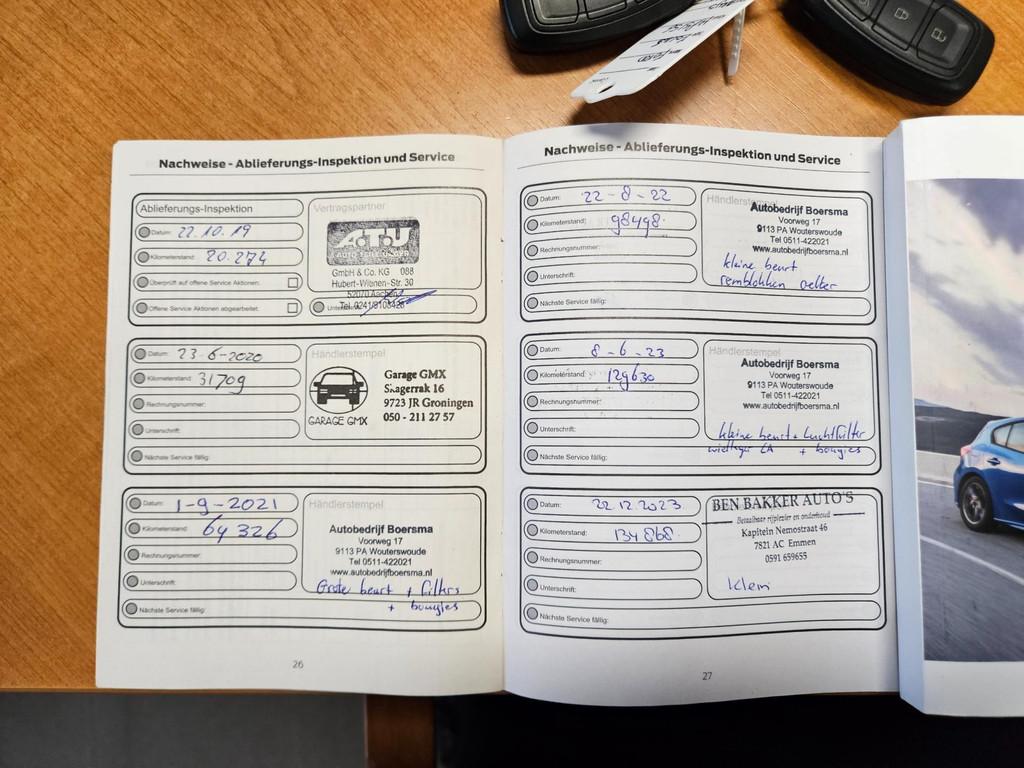 FORD
Nachweise - Ablieferungs-Inspektion und Service
Ablieferungs-Inspektion
Datum: 22.10.19
Kilometerstand: 20.274
Überprüft auf offene Service Aktionen:
Offene Service Aktionen abgearbeitet:
Vertragspartner
A.T.U
AUTO TEILE UNGER
GmbH & Co. KG 088
Hubert-Wienen-Str. 30
52070 Aachen
Tel. 0241/9108420
Datum: 23-6-2020
Kilometerstand: 31709
Rechnungsnummer:
Unterschrift:
Nächste Service fällig:
Händlerstempel
GARAGE GMX
Garage GMX
Skagerrak 16
9723 JR Groningen
050 - 211 27 57
Datum: 1-9-2021
Kilometerstand: 64326
Rechnungsnummer:
Unterschrift:
Nächste Service fällig:
Händlerstempel
Autobedrijf Boersma
Voorweg 17
9113 PA Wouterswoude
Tel 0511-422021
www.autobedrijfboersma.nl
Grote beurt + filters
+ bougies
26
Nachweise - Ablieferungs-Inspektion und Service
Datum: 22-8-22
Kilometerstand: 98498
Rechnungsnummer:
Unterschrift:
Nächste Service fällig:
Händlerstempel
Autobedrijf Boersma
Voorweg 17
9113 PA Wouterswoude
Tel 0511-422021
www.autobedrijfboersma.nl
kleine beurt
remblokken
Datum: 8-6-23
Kilometerstand: 129630
Rechnungsnummer:
Unterschrift:
Nächste Service fällig:
Händlerstempel
Autobedrijf Boersma
Voorweg 17
9113 PA Wouterswoude
Tel 0511-422021
www.autobedrijfboersma.nl
kleine beurt + Luchtfilter
LA + bougies
Datum: 22.12.2023
Kilometerstand: 134868
Rechnungsnummer:
Unterschrift:
Nächste Service fällig:
BEN BAKKER AUTO'S
Betaalbaar rijplezier en onderhoud
Kapitein Nemostraat 46
7821 AC Emmen
0591 659655
Klein
27